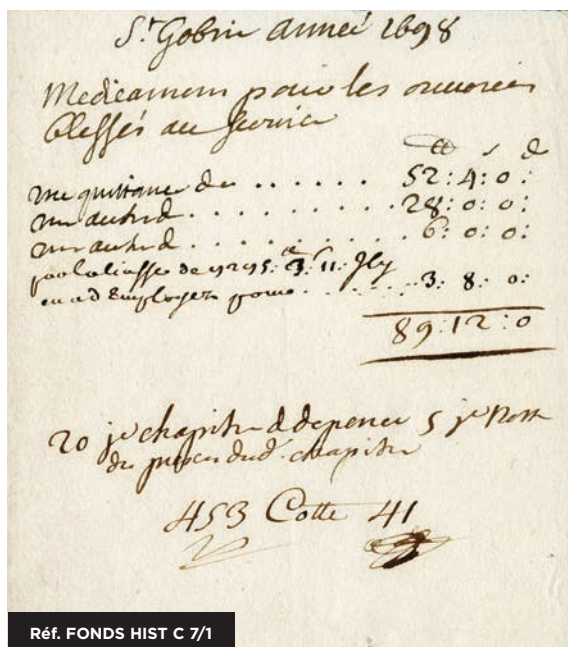 St Gobin année 1698
Medicamens pour les ouvriers
blessés au service
₶ s d
une quittance de . . . . . . 52 : 4 : 0 :
un autre d . . . . . . . . . 28 : 0 : 0 :
un autre d . . . . . . . . . 6 : 0 : 0 :
de 9295
employer pour . . . . . . 3 : 8 : 0 :
89 : 12 : 0
20 je chapitre de depence 5 je
chapitre
453 Cotte 41
Réf. FONDS HIST C 7/1